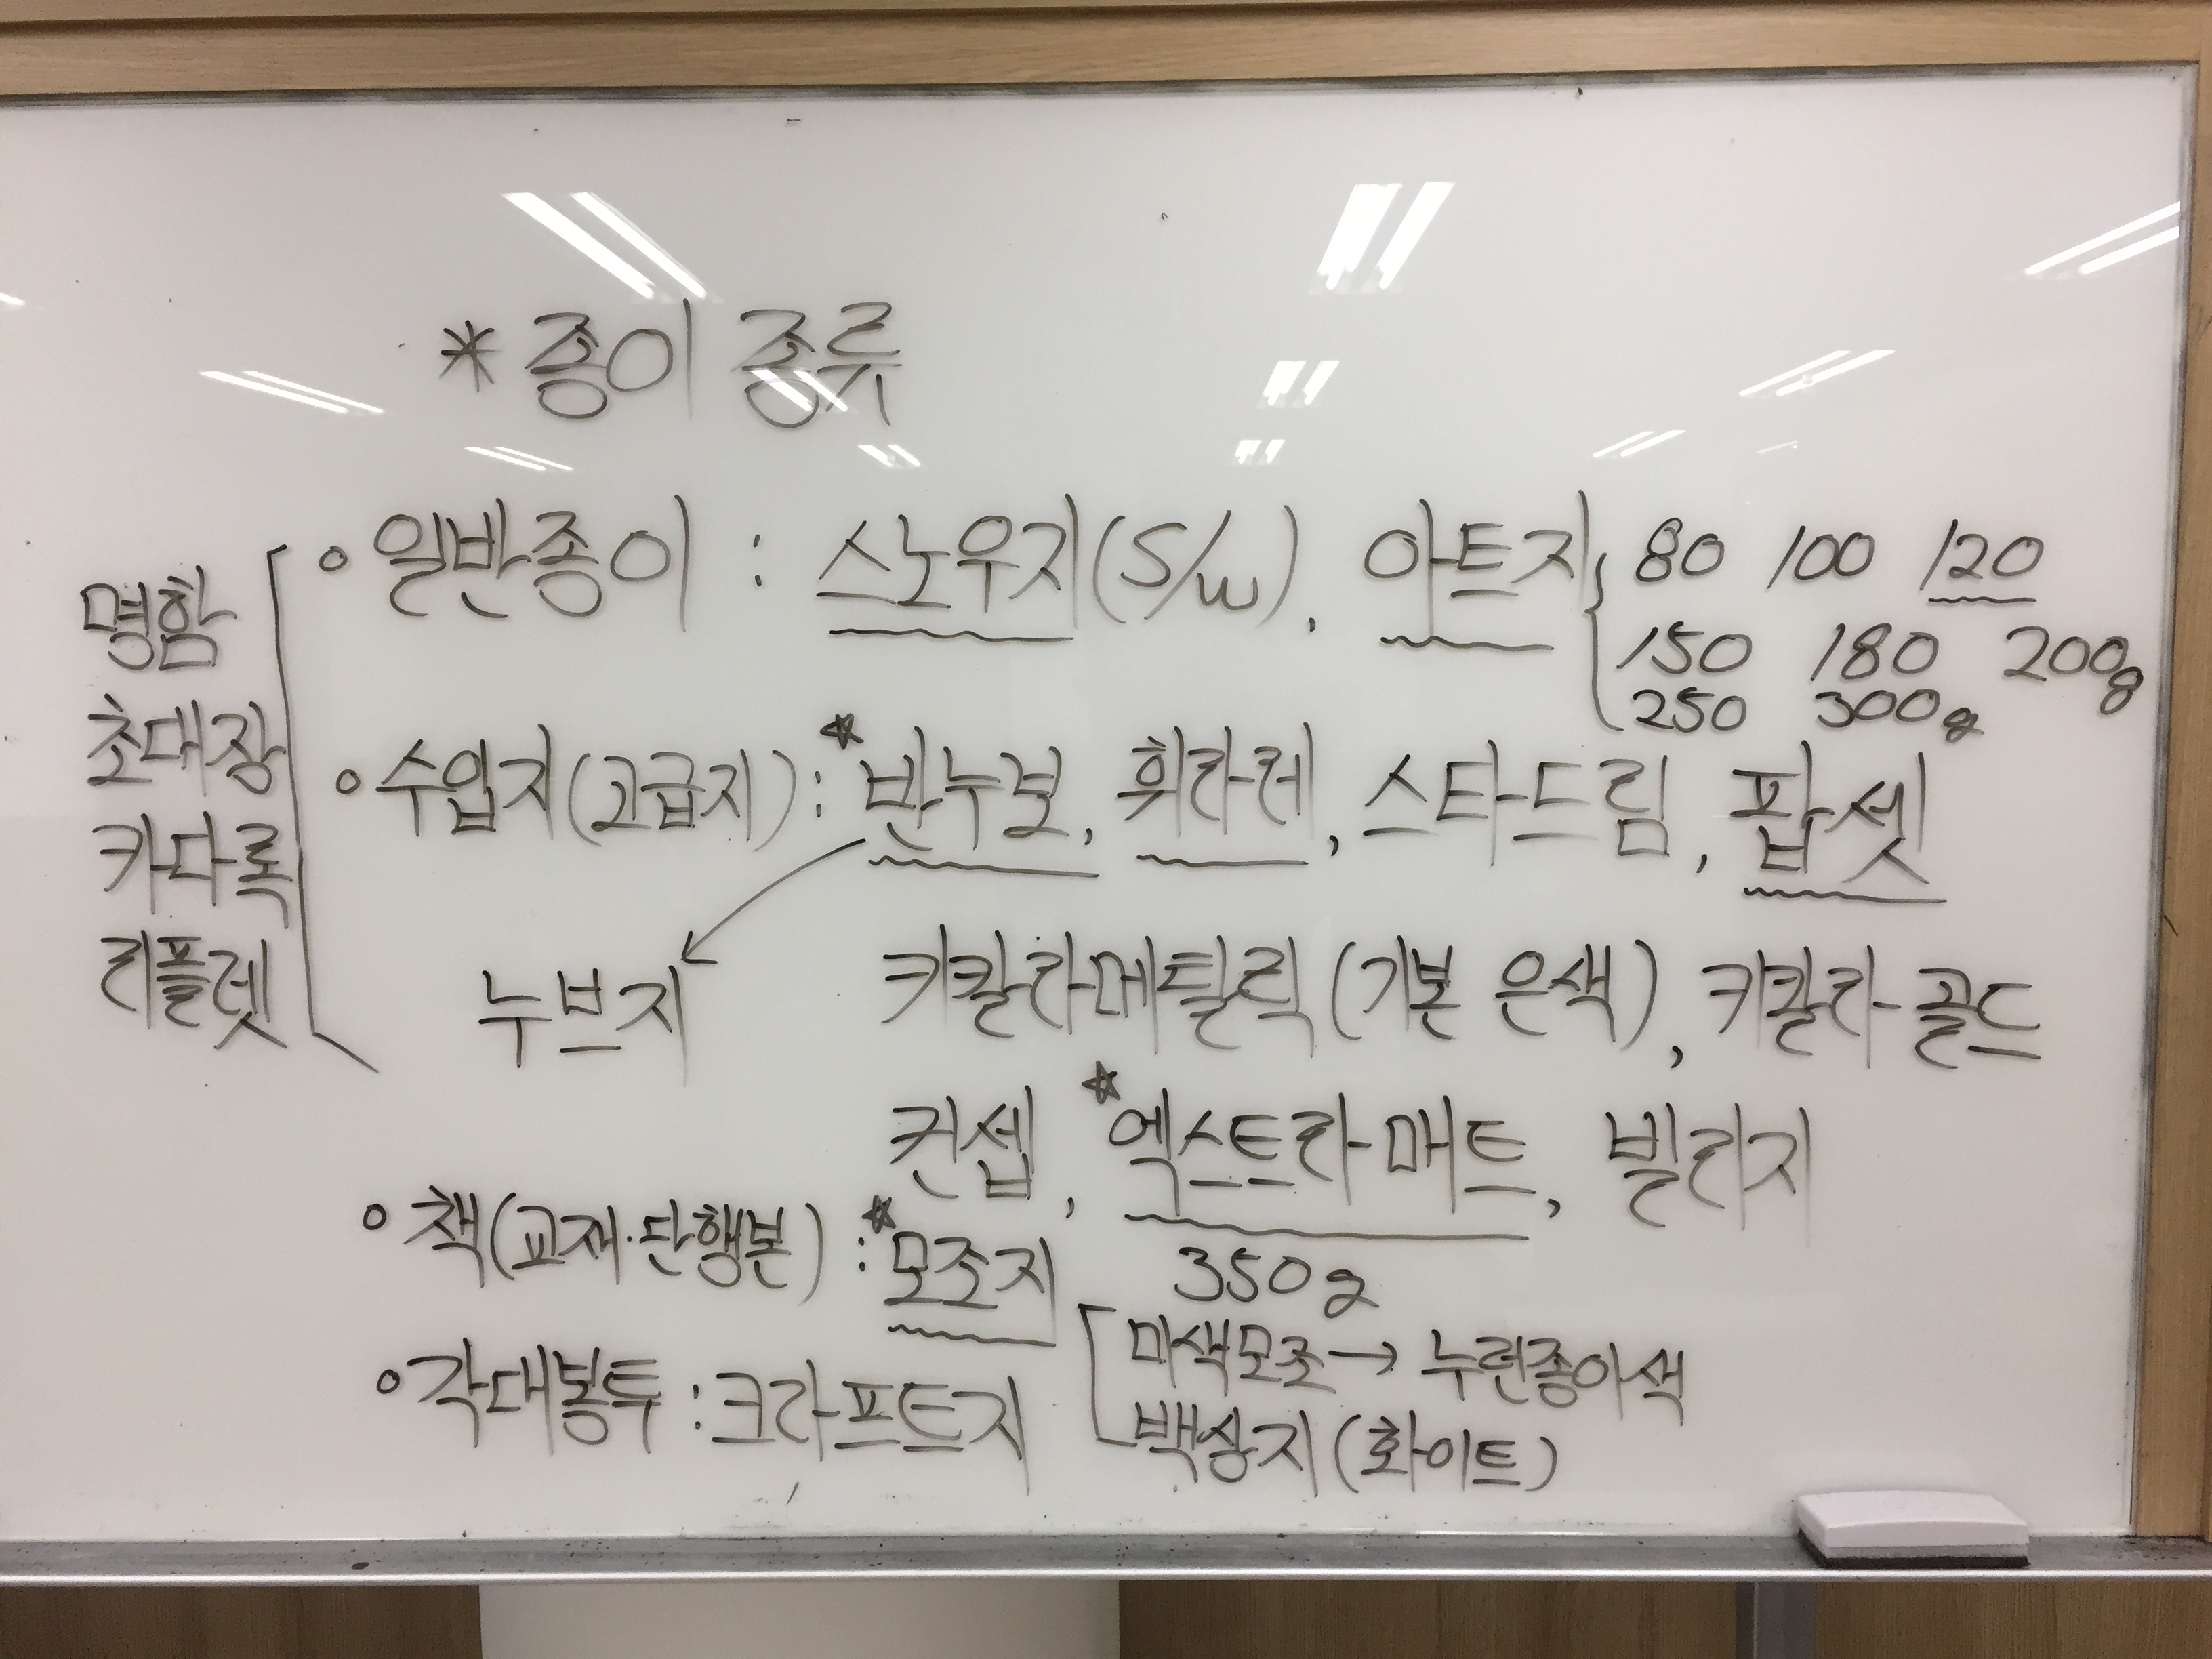 * 종이 종류
명함
초대장
카다록
리플렛
◦ 일반종이 : 스노우지(S/W), 아트지
80 100 120
150 180 200g
250 300g
◦ 수입지(고급지) : ☆반누보, 휘라레, 스타드림, 팝셋
누브지
키칼라메탈릭(기본 은색), 키칼라골드
컨셉, ☆엑스트라매트, 빌리지
350g
◦ 책(교재·단행본) : ☆모조지
미색모조 → 누런종이색
백상지(화이트)
◦ 각대봉투 : 크라프트지